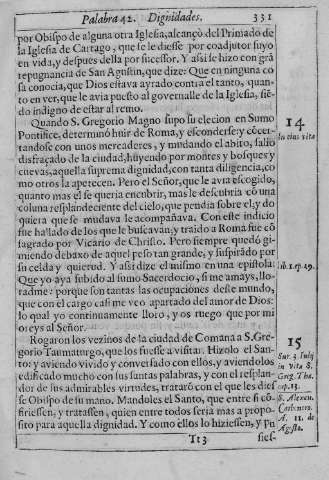 Palabra 42. Dignidades. 331
por Obispo de alguna otra Iglesia, alcançò del Primado de
la Iglesia de Cartago, que le le diesse por coadjutor suyo
en vida, y despues della por sucessor. Y assi le hizo con grã
repugnancia de San Agustin, que dize: Que en ninguna co
sa conocia, que Dios estava ayrado contra el tanto, quan-
to en ver, que le avia puesto al governalle de la Iglesia, siẽ-
do indigno de estar al remo.
Quando S. Gregorio Magno supo su eleccion en Sumo
Pontifice, determinó huir de Roma, y esconderse, y cõcer-
tandose con unos mercaderes, y mudando el abito, salio
disfraçado de la ciudad, huyendo por montes y bosques y
cuevas, aquella suprema dignidad, con tanta diligencia, co
mo otros la apetecen. Pero el Señor, que le avia escogido,
quanto mas el se queria encubrir, mas le descubria cõ una
coluna resplandeciente del cielo, que pendia sobre el, y do
quiera que se mudava le acompañava. Con este indicio
fue hallado de los que le buscavan, y traido a Roma fue cõ
sagrado por Vicario de Christo. Pero siempre quedó gi-
miendo debaxo de aquel peso tan grande, y suspirãdo por
su celda y quietud. Y assi dize el mismo en una epistola:
Que yo aya subido al sumo Sacerdocio, si me amays, llo-
radme: porque son tantas las ocupaciones deste mundo,
que con el cargo casi me veo apartado del amor de Dios:
lo qual yo continuamente lloro, y os ruego que por mi
roguleys al Señor.
Rogaron los vezinos de la ciudad de Comana a S. Gre-
gorio Taumaturgo, que los fuesse a visitar. Hizolo el San-
to: y aviendo vivido y conversado con ellos, y aviendolos
edificado mucho con sus santas palabras, y con el resplan-
dor de sus admirables virtudes, tratarõ con el que les dies
se Obispo de su mano. Mandoles el Santo, que entre si cõ-
firiessen, y tratassen, quien entre todos seria mas a propo-
sito para aquella dignidad. Y como ellos lo hiziessen, y pu
Tt 3 sies-
14
In eius vita
lib. 1. ep. 29.
15
Sur. 3. Iulij
in vita S.
Greg. Tha.
cap. 13.
S. Alexan.
A. 11. de
Agosto.